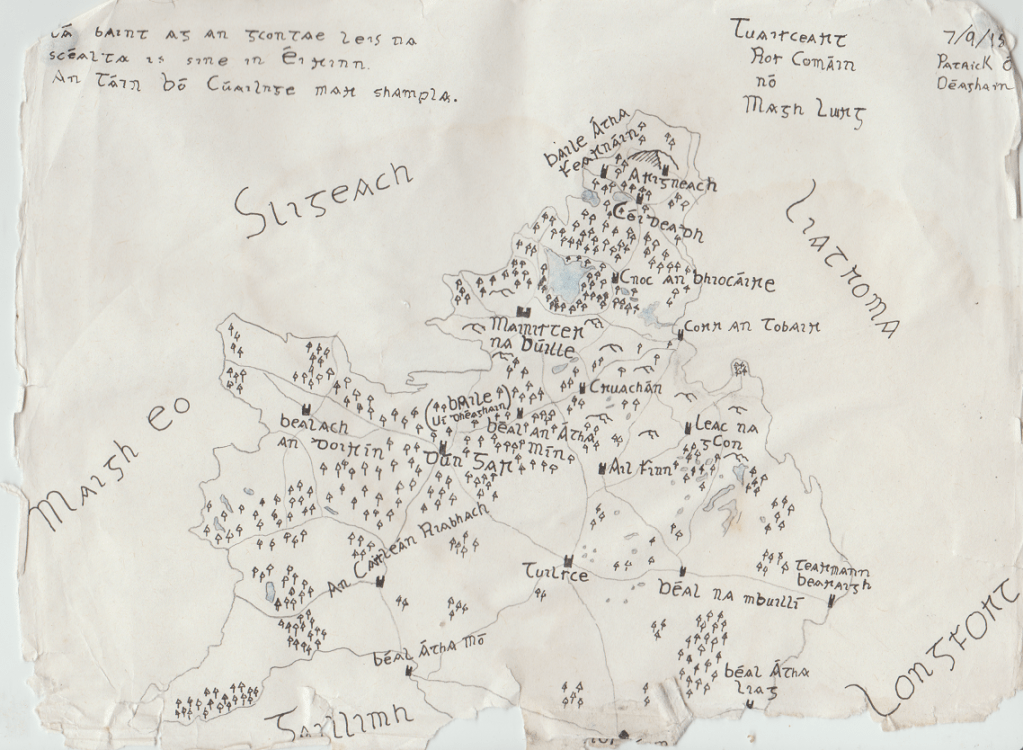 Tá baint ag an gcontae leis na
scéalta is sine in Éirinn.
An Táin Bó Cúailnge mar shampla.
Tuairceart
Ros Comáin
nó
Magh Luirg
7/9/15
Patrick Ó
Déaghain
Sligeach
Liatroma
Maigh Eo
Gaillimh
Longfort
Baile Átha
Fearnáin
Airgneach
Céideadh
Cnoc an Bhiocáire
Mainister
na Búille
Corr an Tobair
Cruachán
(Baile
Uí Dhéaghain)
Béal an Átha
Mín
Bealach
an Doirín
Dún Gar
Leac na
gCon
Ail Finn
An Caisleán Riabhach
Tuilsce
Béal na mBuillí
Tearmann
Bearaigh
Béal Átha Mó
Béal Átha
Liag